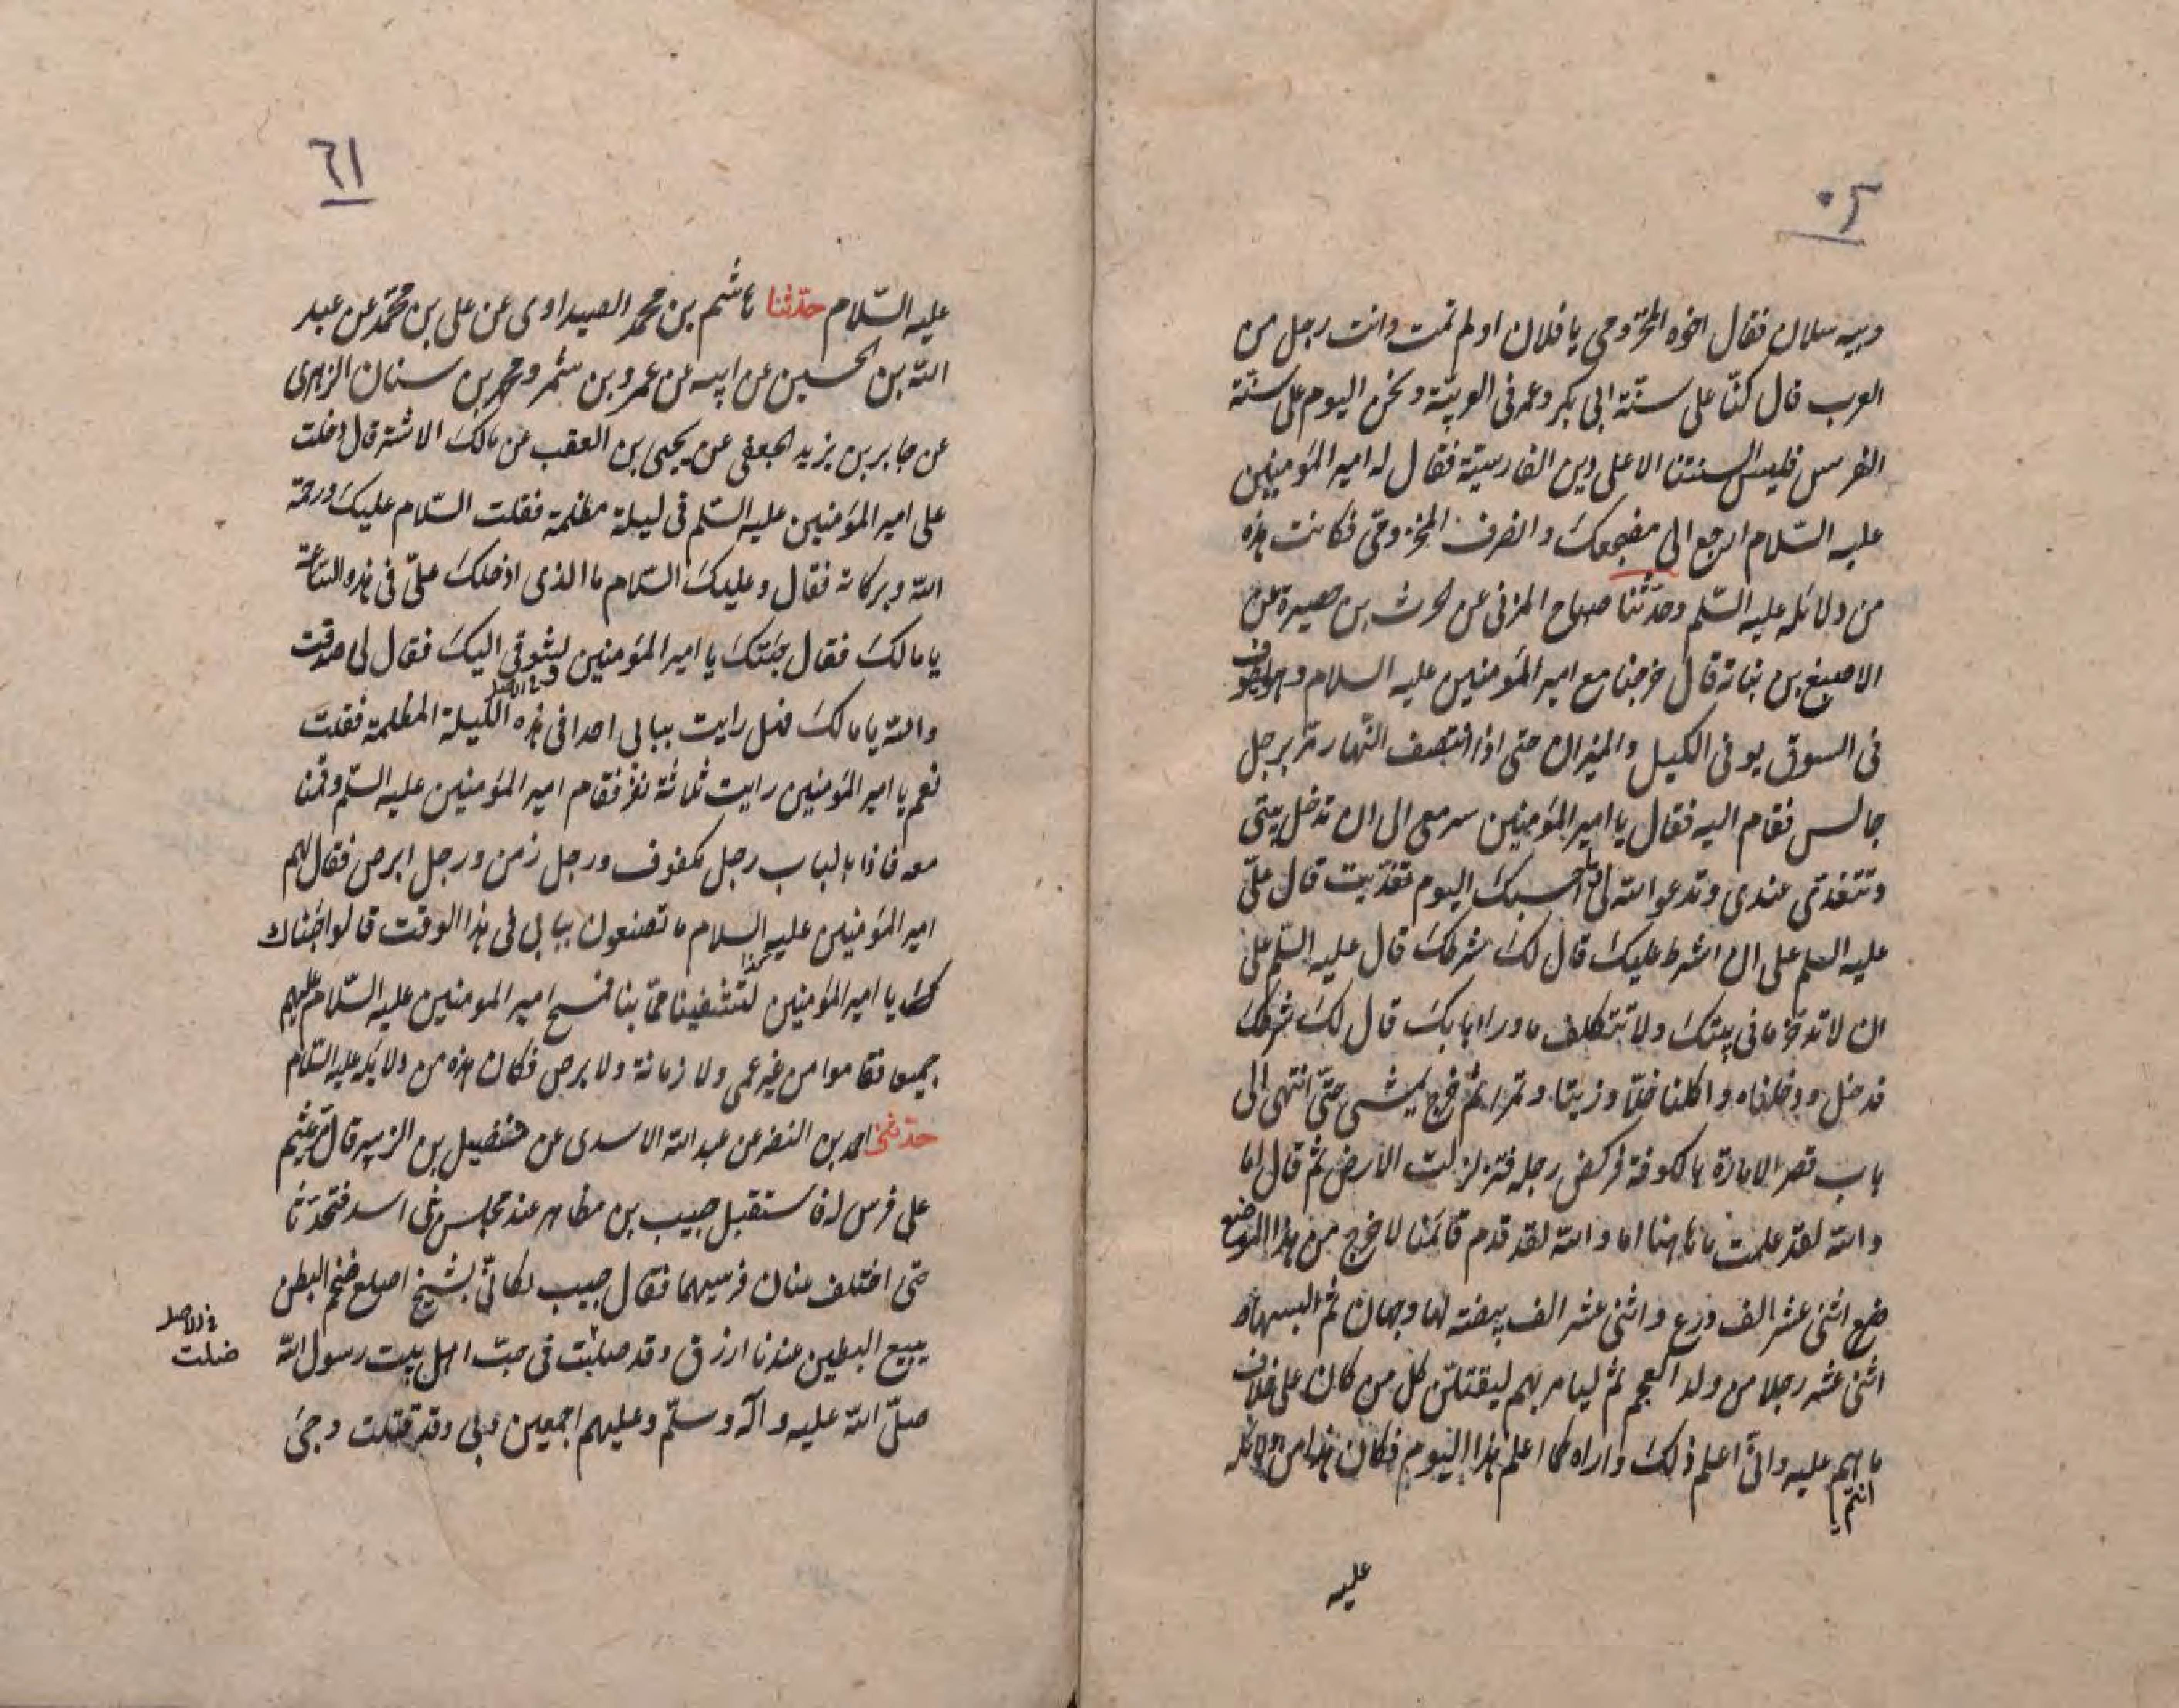 وبيه سلان فقال اخوه المخزومى يا فلان اولم تمت وانت رجل من
العرب قال كنّا على سنّة ابى بكر وعمر فى العربيّة ونحن اليوم على سنّة
الفرس فليس السنتنا الا على دين الفارسيّة فقال له امير المؤمنين
عليه السّلام ارجع الى مضجعك وانصرف المخزومى فكانت هذه
من دلائله عليه السّلم وحدّثنا صباح المزنى عن الحرث بن حصيرة عن
الاصبغ بن نباتة قال خرجنا مع امير المؤمنين عليه السلام وهو يطوف
فى السوق يوفى الكيل والميزان حتى اذا انتصف النّهار مرّ برجل
جالس فقام اليه فقال يا امير المؤمنين سر معى الى ان تدخل بيتى
وتتغدّى عندى وتدعو الله لى احسبك اليوم تغدّيت قال علىّ
عليه السلم على ان اشرط عليك قال لك شرطك قال عليه السّلم على
ان لا تدّخر ما فى بيتك ولا تتكلف ما وراء بابك قال لك شرطك
فدخل ودخلناه واكلنا خلّا وزيتا وتمرا ثم خرج يمشى حتّى انتهى الى
باب قصر الامارة بالكوفة فركض رجله فتزلزلت الارض ثم قال اما
والله لقد علمت ما هاهنا اما والله لقد قدم قائمنا لاخرج من هذا الموضع
ضع اثنى عشر الف درع واثنى عشر الف بيضة لها وجهان ثم البسها
اثنى عشر رجلا من ولد العجم ثم ليامر بهم ليقتلنّ كل من كان على خلاف
ما هم عليه وانّى اعلم ذلك واراه كما اعلم هذا اليوم فكان هذا من دلائله
انتم
عليه
٦١
عليه السّلام حدّثنا هاشم بن محمد الصيداوى عن على بن محمّد عن عبد
الله بن الحسين عن ابيه عن عمرو بن شمر ومحمد بن سنان الزهرى
عن جابر بن يزيد الجعفى عن يحيى بن العقب عن مالك الاشتر قال دخلت
على امير المؤمنين عليه السّلم فى ليلة مظلمة فقلت السّلام عليك ورحمة
الله وبركاته فقال وعليك السّلام ما الذى ادخلك علىّ فى هذه السّاعة
يا مالك فقال جئتك يا امير المؤمنين وشوقى اليك فقال لى صدقت
والله يا مالك فهل رايت ببابى احدا فى هذه الليلة المظلمة فقلت
نعم يا امير المؤمنين رايت ثلاثة نفر فقام امير المؤمنين عليه السّلم وقمنا
معه فاذا بالباب رجل مكفوف ورجل زمن ورجل ابرص فقال لهم
امير المؤمنين عليه السلام ما تصنعون ببابى فى هذا الوقت قالوا جئناك
يا امير المؤمنين لتشفينا ممّا بنا فمسح امير المومنين عليه السّلام عليهم
جميعا فقاموا من غير عمى ولا زمانة ولا برص فكان هذه من دلائله عليه السّلام
حدّثنى احمد بن النضر عن عبد الله الاسدى عن فضيل بن الزبير قال مرّ ميثم
على فرس له فاستقبل حبيب بن مظاهر عند مجلس بنى اسد فتحدّثا
حتى اختلف عنان فرسيهما فقال حبيب لكانّى بشيخ اصلع ضخم البطن
يبيع البطيخ عند دار ارزق وقد صلبت فى حبّ اهل بيت رسول الله
صلّى الله عليه وآله وسلّم وعليهم اجمعين وبى وقد قتلت وجئ
فى الاصل